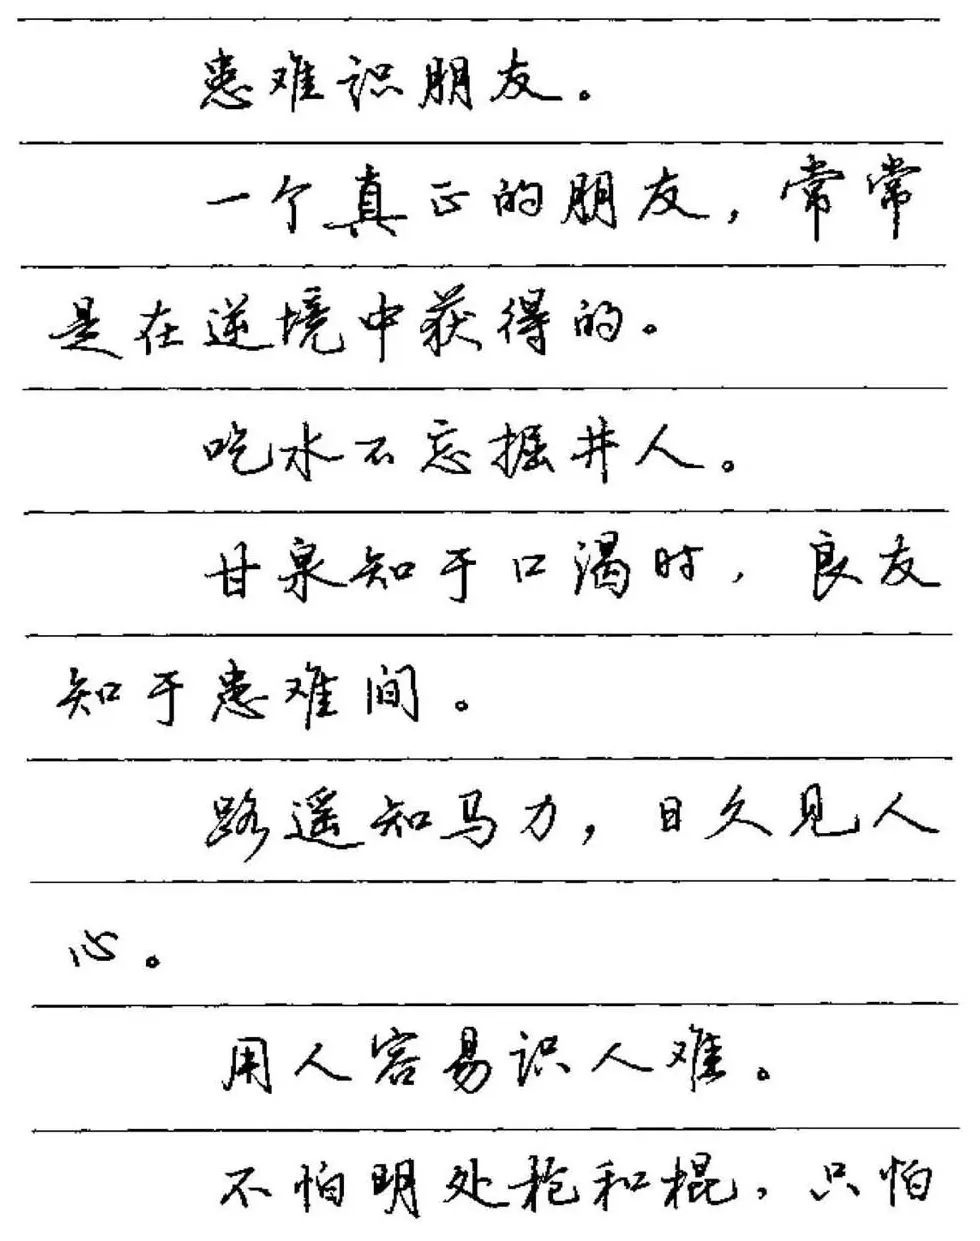 患难识朋友。
一个真正的朋友，常常
是在逆境中获得的。
吃水不忘掘井人。
甘泉知于口渴时，良友
知于患难间。
路遥知马力，日久见人
心。
用人容易识人难。
不怕明处枪和棍，只怕